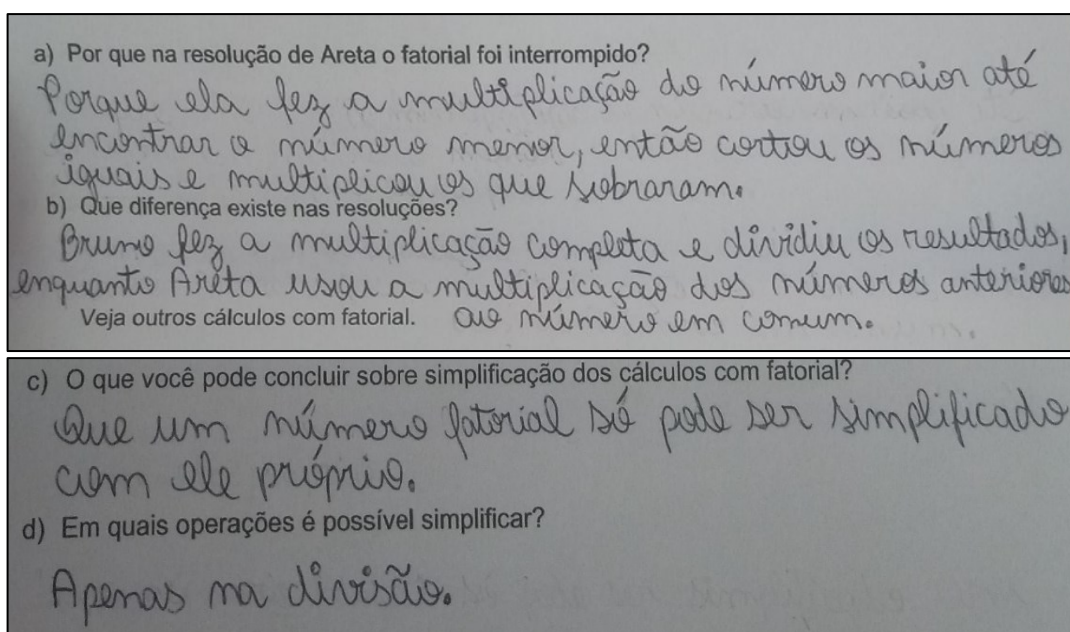 a) Por que na resolução de Areta o fatorial foi interrompido?
Porque ela fez a multiplicação do número maior até
encontrar o número menor, então cortou os números
iguais e multiplicou os que sobraram.
b) Que diferença existe nas resoluções?
Bruno fez a multiplicação completa e dividiu os resultados,
enquanto Areta usou a multiplicação dos números anteriores
Veja outros cálculos com fatorial. ao número em comum.
c) O que você pode concluir sobre simplificação dos cálculos com fatorial?
Que um número fatorial só pode ser simplificado
com ele próprio.
d) Em quais operações é possível simplificar?
Apenas na divisão.